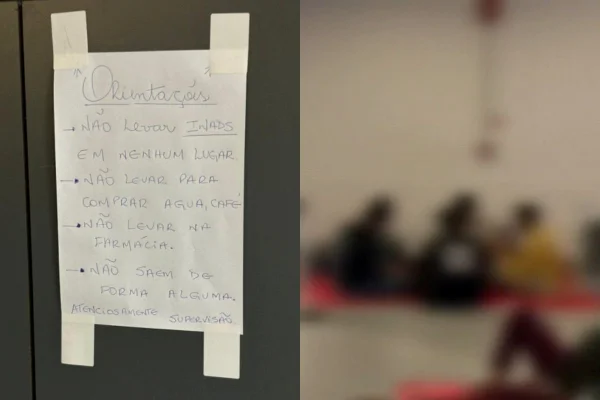 Orientações
→ NÃO LEVAR INADS
EM NENHUM LUGAR
→ • NÃO LEVAR PARA
COMPRAR AGUA, CAFÉ
→ • NÃO LEVAR NA
FARMÁCIA.
→ • NÃO SAEM DE
FORMA ALGUMA.
ATENCIOSAMENTE SUPERVISÃO